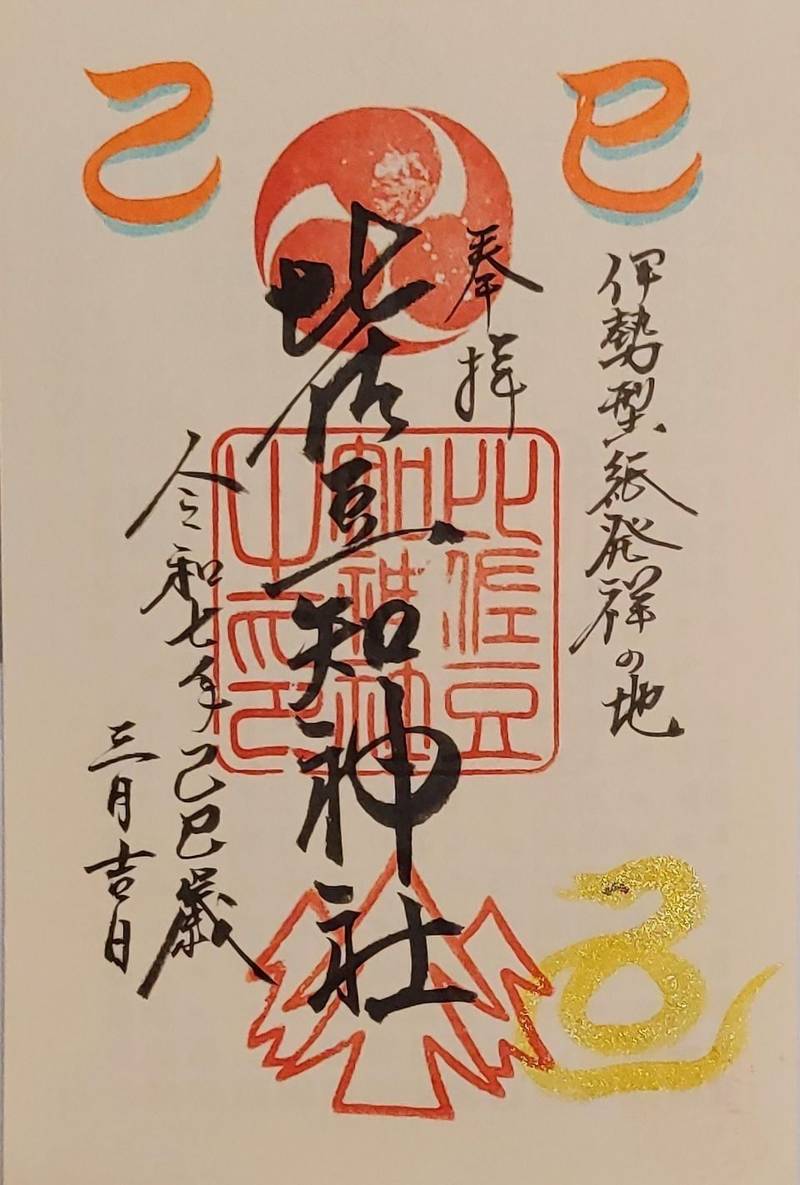 乙
巳
伊勢型紙発祥の地
奉拝
比佐豆知神社
令和七年乙巳歳
三月吉日
比佐豆
知神社
之印